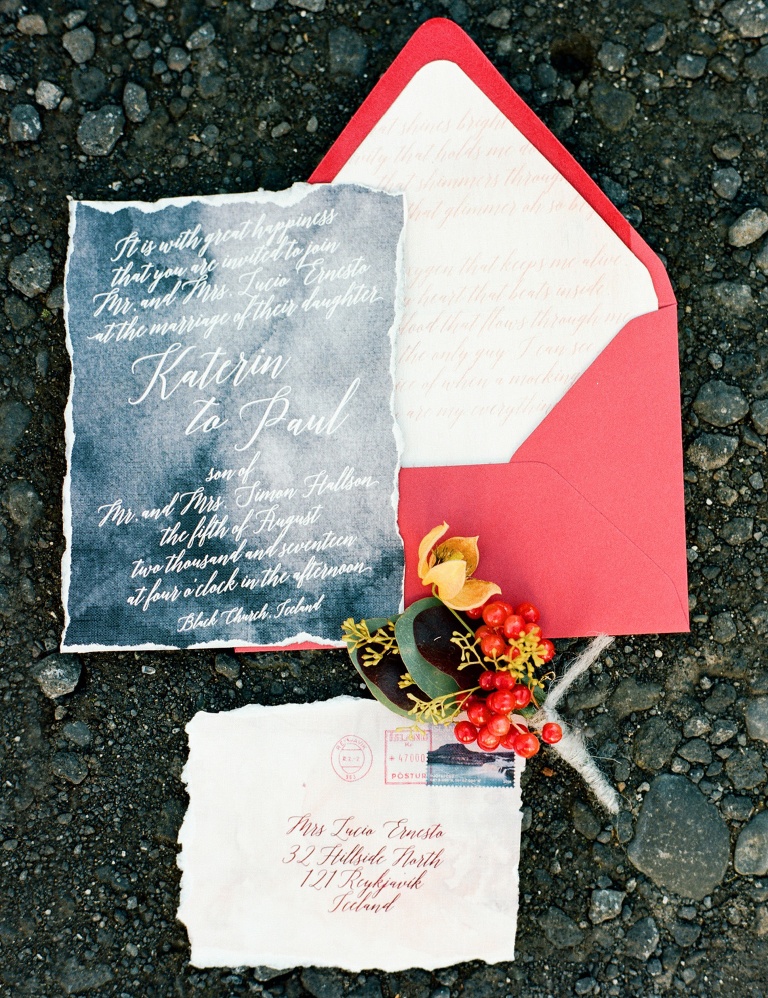 It is with great happiness
that you are invited to join
Mr. and Mrs. Lucio Ernesto
at the marriage of their daughter
Katerin
to Paul
son of
Mr. and Mrs. Simon Hallson
the fifth of August
two thousand and seventeen
at four o'clock in the afternoon
Black Church, Iceland
that holds me
that shimmers through
that glimmer oh so
that keeps me alive
heart that beats inside
that flows through me
the only guy I can see
of when a
are my everything
PÓSTUR
Mrs Lucio Ernesto
32 Hillside North
121 Reykjavik
Iceland